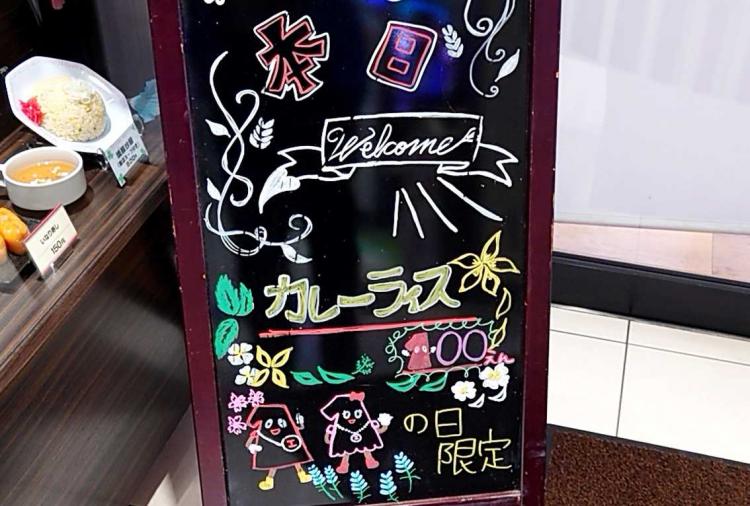 本日
Welcome
カレーライス
100えん
の日
限定
いなり寿し
150円